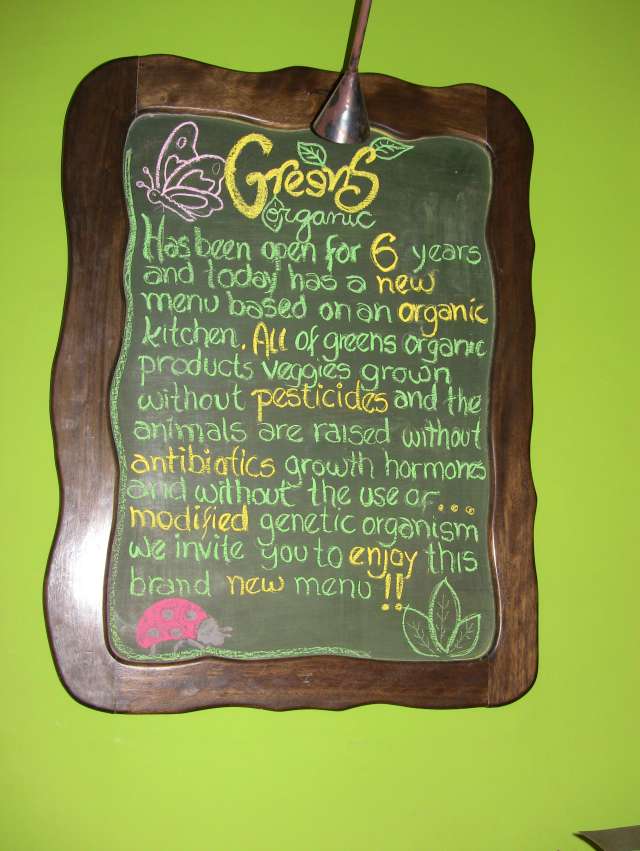 Greens
organic
Has been open for 6 years
and today has a new
menu based on an organic
kitchen. All of greens organic
products veggies grown
without pesticides and the
animals are raised without
antibiotics growth hormones
and without the use or...
modified genetic organism
we invite you to enjoy this
brand new menu!!